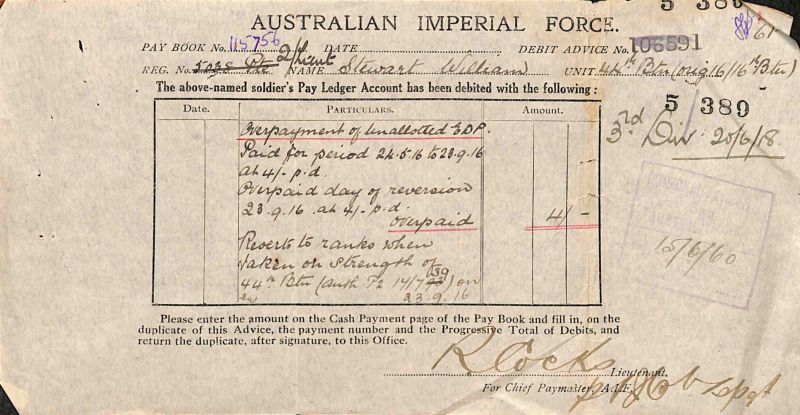 5 386
61
AUSTRALIAN IMPERIAL FORCE.
PAY BOOK No. 115756 DATE DEBIT ADVICE No. 106591
REG. No. 5038 Pte 2/Lieut NAME Stewart William UNIT 44th Btn (orig 16/16th Btn)
The above-named soldier's Pay Ledger Account has been debited with the following :
5 389
Date. PARTICULARS. Amount.
3rd Div 20/6/18.
Overpayment of Unallotted EDP.
Paid for period 24.5.16 to 23.9.16
at 4/- p.d.
Overpaid day of reversion
23.9.16 at 4/- p.d.
overpaid 4/-
15/6/60
Reverts to ranks when
taken on strength of
44th Btn (auth F2 17/7) on
23.9.16
Please enter the amount on the Cash Payment page of the Pay Book and fill in, on the
duplicate of this Advice, the payment number and the Progressive Total of Debits, and
return the duplicate, after signature, to this Office.
R Cocks Lieutenant.
For Chief Paymaster, A.I.F.